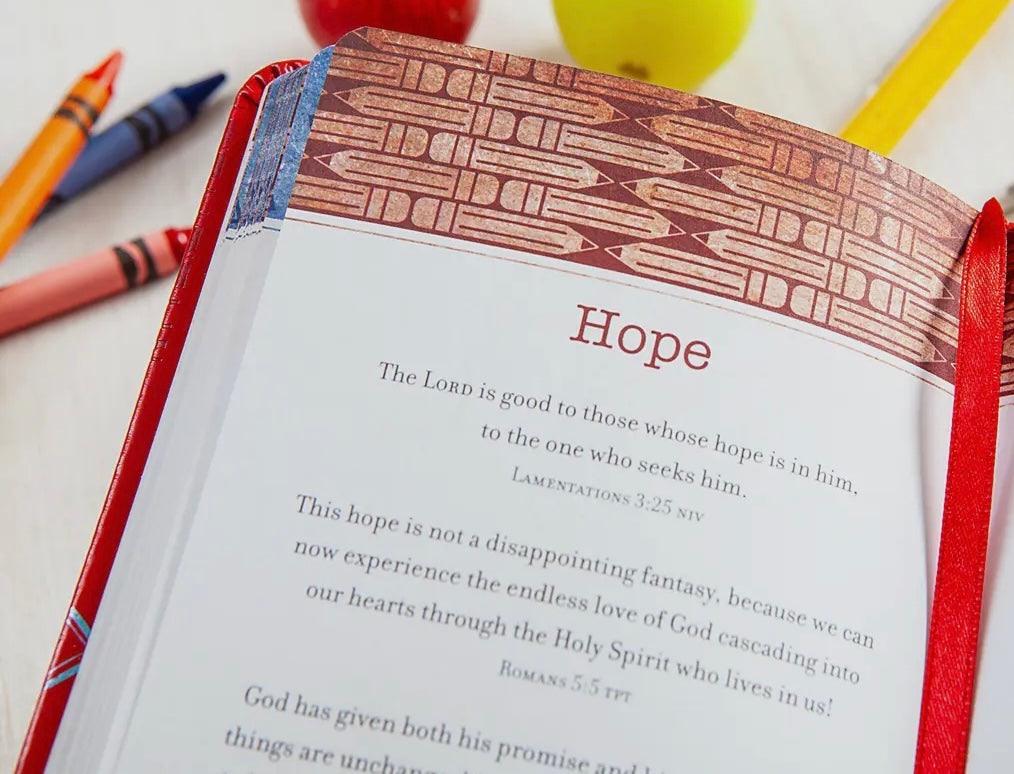 Hope
The LORD is good to those whose hope is in him,
to the one who seeks him.
LAMENTATIONS 3:25 NIV
This hope is not a disappointing fantasy, because we can
now experience the endless love of God cascading into
our hearts through the Holy Spirit who lives in us!
ROMANS 5:5 TPT
God has given both his promise and
things are